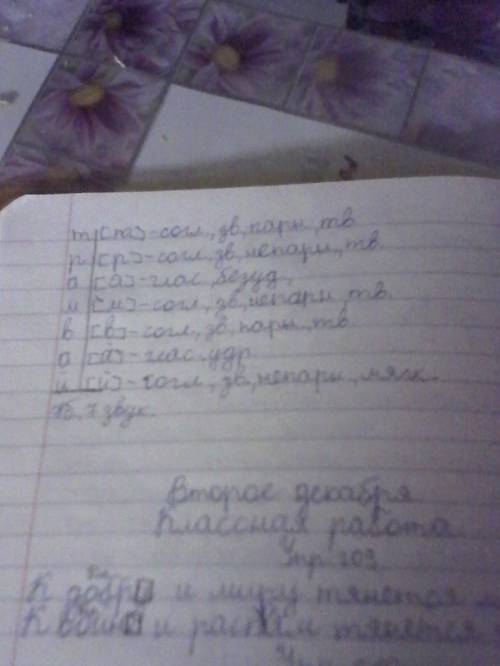 т [т] - согл., зв, парн., тв.
р [р] - согл., зв, непарн., тв.
а [а] - глас, безуд.
м [м] - согл., зв, непарн., тв.
в [в] - согл., зв, парн., тв
а [а] - глас. удр
й [й] - согл., зв, непарн., мягк.
7б. 7 звук.
Второе декабря
Классная работа
Упр 209.
К добр и миру тянется
К войне и распрям тянется